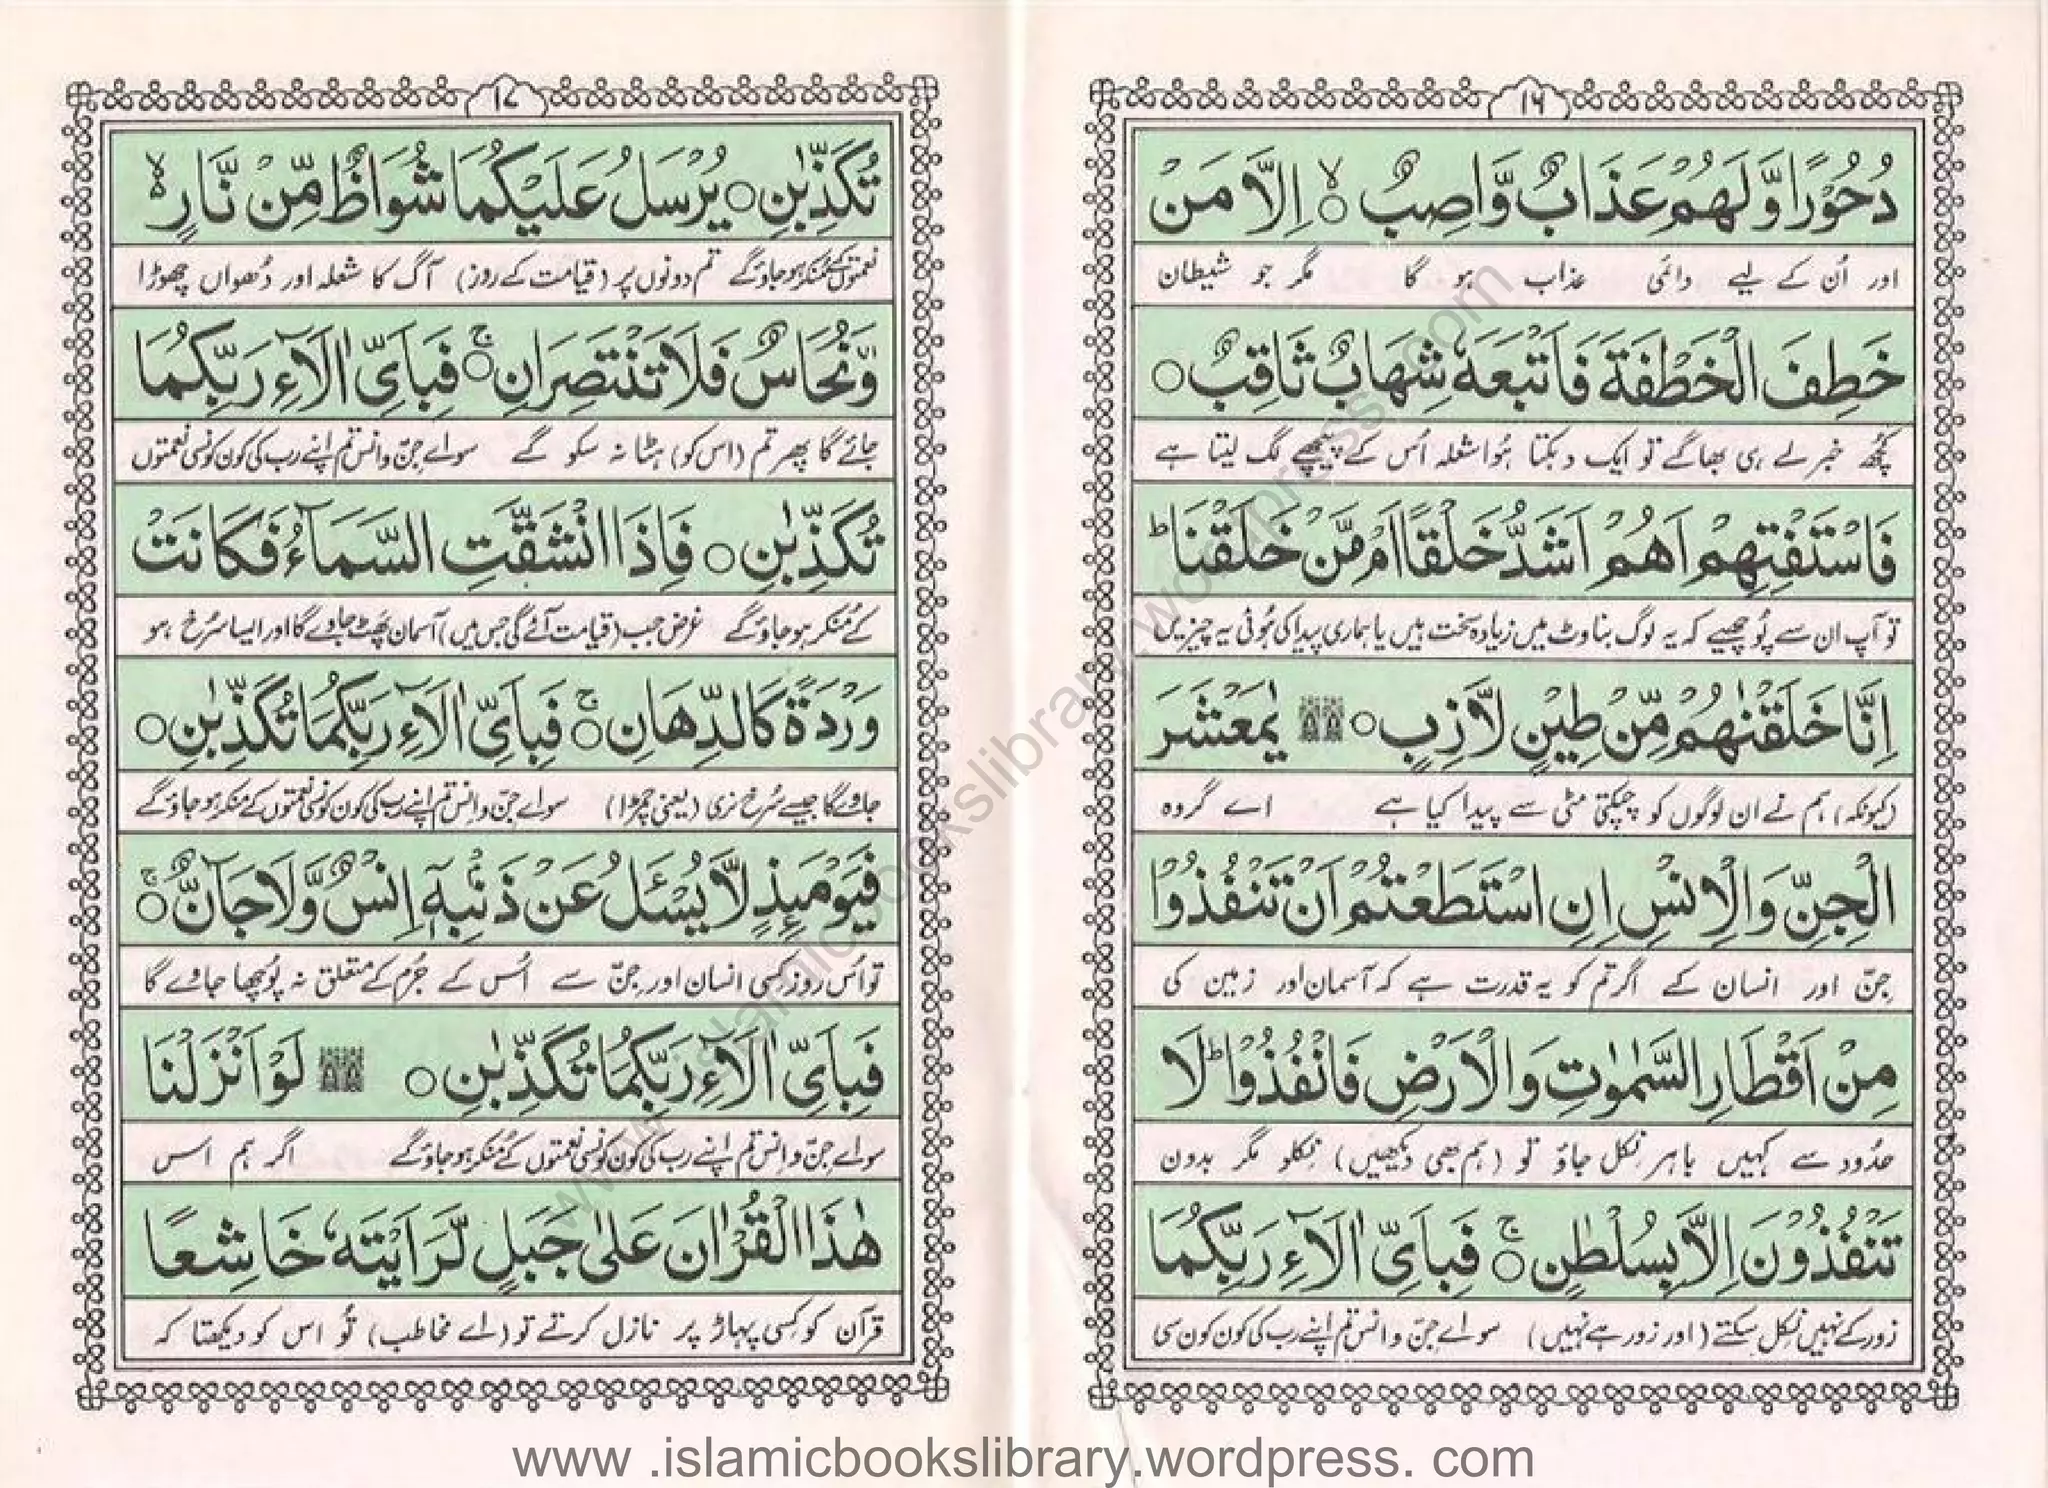 ۱۶
دُحُوْرًا وَّلَهُمْ عَذَابٌ وَّاصِبٌ ۙ اِلَّا مَنْ
اور اُن کے لیے دائمی عذاب ہو گا مگر جو شیطان
خَطِفَ الْخَطْفَةَ فَاَتْبَعَهٗ شِهَابٌ ثَاقِبٌ ○
کچھ خبر لے ہی بھاگے تو ایک دہکتا ہُوا شعلہ اُس کے پیچھے لگ لیتا ہے
فَاسْتَفْتِهِمْ اَهُمْ اَشَدُّ خَلْقًا اَمْ مَّنْ خَلَقْنَا ؕ
تو آپ ان سے پُوچھیے کہ یہ لوگ بناوٹ میں زیادہ سخت ہیں یا ہماری پیدا کی ہُوئی یہ چیزیں
اِنَّا خَلَقْنٰهُمْ مِّنْ طِيْنٍ لَّازِبٍ ○ يٰمَعْشَرَ
(کیونکہ) ہم نے ان لوگوں کو چپکتی مٹی سے پیدا کیا ہے اے گروہ
الْجِنِّ وَالْاِنْسِ اِنِ اسْتَطَعْتُمْ اَنْ تَنْفُذُوْا
جِنّ اور انسان کے اگر تم کو یہ قدرت ہے کہ آسمان اور زمین کی
مِنْ اَقْطَارِ السَّمٰوٰتِ وَالْاَرْضِ فَانْفُذُوْا ؕ لَا
حدُود سے کہیں باہر نِکل جاؤ تو (ہم بھی دیکھیں) نِکلو مگر بدون
تَنْفُذُوْنَ اِلَّا بِسُلْطٰنٍ ○ۚ فَبِاَيِّ اٰلَآءِ رَبِّكُمَا
زور کے نہیں نِکل سکتے (اور زور ہے نہیں) سو اے جِنّ و انس تم اپنے رب کی کون کون سی
۱۷
تُكَذِّبٰنِ ○ يُرْسَلُ عَلَيْكُمَا شُوَاظٌ مِّنْ نَّارٍ ۙ
نعمتوں کے مُنکر ہو جاؤ گے تم دونوں پر (قیامت کے روز) آگ کا شعلہ اور دُھواں چھوڑا
وَّنُحَاسٌ فَلَا تَنْتَصِرَانِ ○ۚ فَبِاَيِّ اٰلَآءِ رَبِّكُمَا
جائے گا پھر تم (اس کو) ہٹا نہ سکو گے سو اے جِنّ و انس تم اپنے رب کی کون کونسی نعمتوں
تُكَذِّبٰنِ ○ فَاِذَا انْشَقَّتِ السَّمَآءُ فَكَانَتْ
کے مُنکر ہو جاؤ گے غرض جب (قیامت آئے گی جس میں) آسمان پھٹ جاوے گا اور ایسا سُرخ ہو
وَرْدَةً كَالدِّهَانِ ○ۚ فَبِاَيِّ اٰلَآءِ رَبِّكُمَا تُكَذِّبٰنِ ○
جاوے گا جیسے سُرخ نری (یعنی چمڑا) سو اے جِنّ و انس تم اپنے رب کی کون کونسی نعمتوں کے منکر ہو جاؤ گے
فَيَوْمَئِذٍ لَّا يُسْئَلُ عَنْ ذَنْۢبِهٖٓ اِنْسٌ وَّلَا جَآنٌّ ○ۚ
تو اُس روز کِسی انسان اور جِنّ سے اُس کے جُرم کے متعلق نہ پُوچھا جاوے گا
فَبِاَيِّ اٰلَآءِ رَبِّكُمَا تُكَذِّبٰنِ ○ لَوْ اَنْزَلْنَا
سو اے جِنّ و انس تم اپنے رب کی کون کونسی نعمتوں کے مُنکر ہو جاؤ گے اگر ہم اس
هٰذَا الْقُرْاٰنَ عَلٰى جَبَلٍ لَّرَاَيْتَهٗ خَاشِعًا
قرآن کو کِسی پہاڑ پر نازل کرتے تو (اے مخاطب) تُو اس کو دیکھتا کہ
www.islamicbookslibrary.wordpress.com
www .islamicbookslibrary.wordpress. com